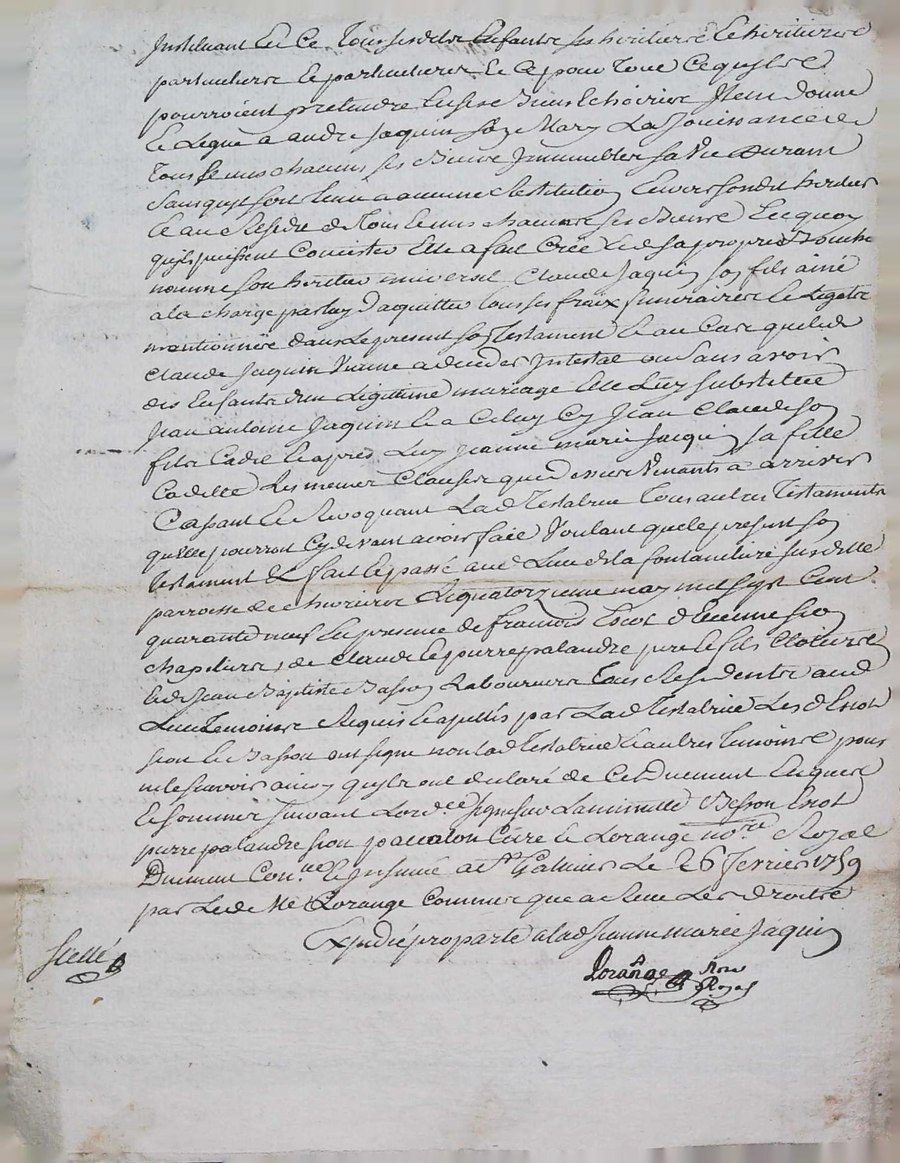 Instituant En Ce Tous enfants ses heritiers Et heritieres
particuliers Et particulieres Et Ce pour Tout Ce quils
pourroient pretendre En ses Biens Et hoirie Item donne
Et Legue a andre Jaquin son Mary La Jouissance de
Tous Et uns chacuns ses Biens Immeubles sa Vie Durant
Sans quil soit tenu a aucune Restitution Envers sondit heritier
Et au Residu de Tous Et uns chacuns ses Biens En quoy
quils puissent Consister Elle a fait Crée Et de sa propre Bouche
nommé son heritier universel Claude Jaquin son fils ainé
a la charge par luy d'aquitter tous ses fraix funeraires Et Legats
mentionnés dans Le present son Testament Et au Cas que led
Claude Jaquin Vienne a deceder Intestat ou Sans avoir
des Enfants d'un Legitime mariage Elle Luy Substitue
Jean antoine Jaquin Et a Celuy Cy Jean Claude son
fils Cadet Et apres Luy Jeanne marie Jacquin sa fille
Cadette Les memes Clauses que dessus Venants a arriver
Cassant Et Revoquant Lad Testatrice Tous autres Testaments
qu'elle pourroit Cy devant avoir fait Voulant que le present son
testament fait Et passé aud Lieu de la fontaniliere susditte
parroisse de chevrieres Le quatorzieme may mil sept Cent
quarante neuf En presence de francois Enot d'Etienne sion
chapeliers, de Claude Et pierre palandre pere Et fils Cloutiers
Et de Jean Baptiste Basson Laboureurs Tous Residents aud
Lieu temoins Requis Et apellés par Lad Testatrice Les d Enot
sion Et Basson ont signé non lad Testatrice Et autres temoins pour
ne le scavoir ainsy quils ont declaré de Ce Duement Enquis
Et sommés suivant Lord.ce signé sur La minutte Besson Enot
pierre palandre sion pavalon Cure Et Lorange no.re Royal
Duement Con.lé Et Insinué a St Galmier Le 26 fevrier 1759
par Led Me Lorange Commis que a Receu Les droits
Expedié pro parte a lad Jeanne marie Jaquin
Scellé
Lorange Nore
Royal